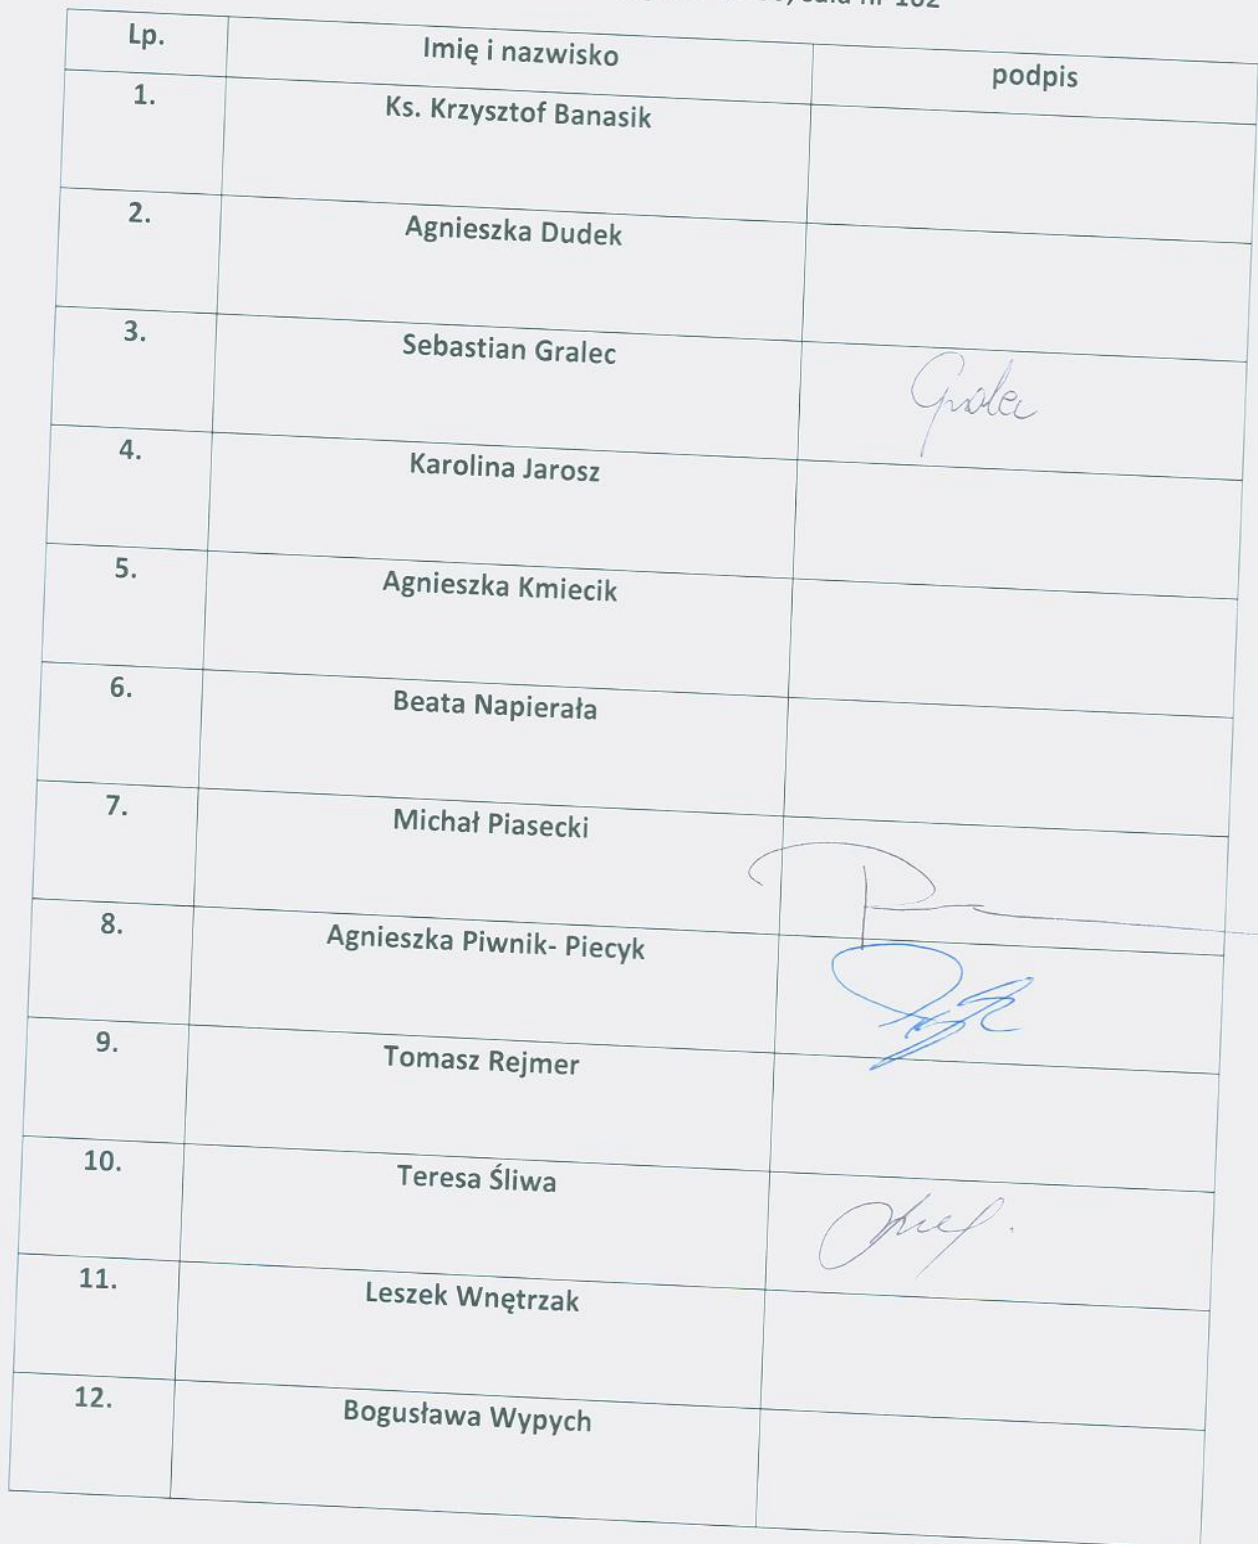 sala nr 102
Lp. Imię i nazwisko podpis
1. Ks. Krzysztof Banasik
2. Agnieszka Dudek
3. Sebastian Gralec Gralec
4. Karolina Jarosz
5. Agnieszka Kmiecik
6. Beata Napierała
7. Michał Piasecki
8. Agnieszka Piwnik- Piecyk
9. Tomasz Rejmer
10. Teresa Śliwa
11. Leszek Wnętrzak
12. Bogusława Wypych